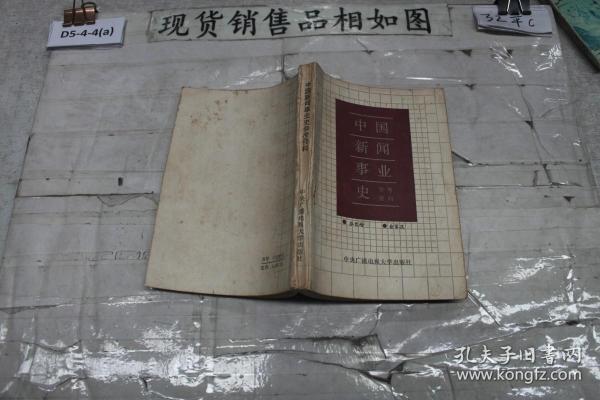 现货销售品相如图
D5-4-4(a)
中国
新闻
事业
史 参考
资料
中央广播电视大学出版社
中国新闻事业史参考资料
中央广播电视大学出版社
孔夫子旧书网
www.kongfz.com